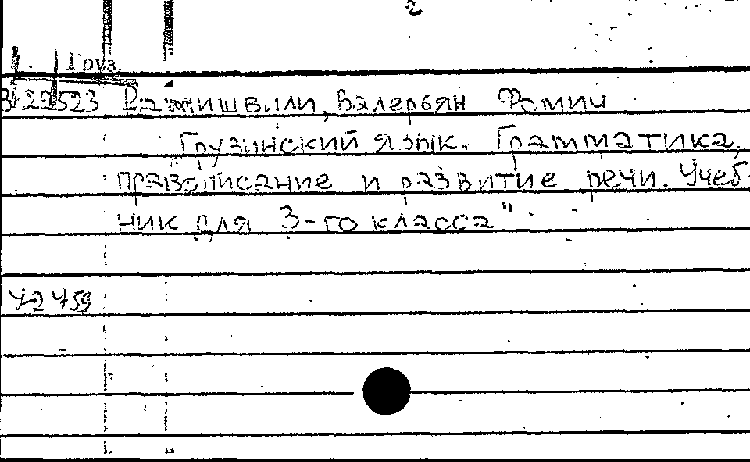 Груз.
Рамишвили, Валерьян Фомич
Грузинский язык. Грамматика,
правописание и развитие речи. Учеб-
ник для 3-го класса"